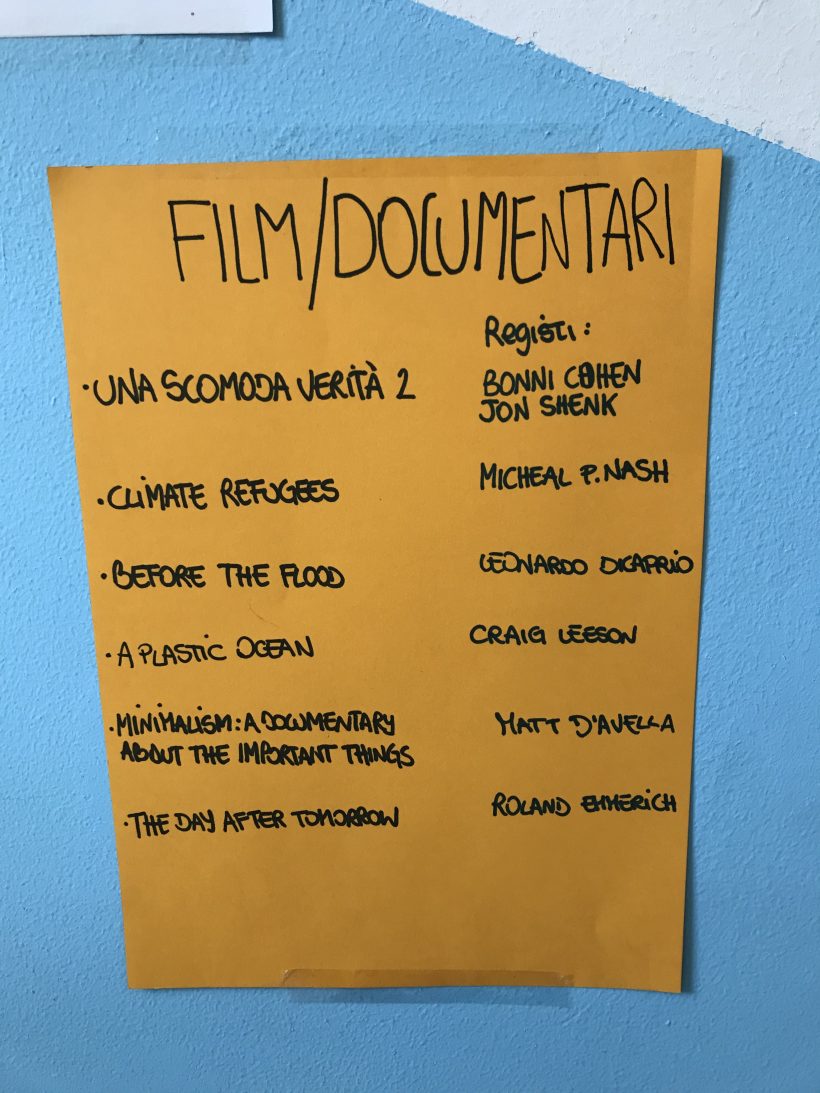 FILM/DOCUMENTARI
Registi:
·UNA SCOMODA VERITÀ 2
BONNI COHEN
JON SHENK
·CLIMATE REFUGEES
MICHEAL P. NASH
·BEFORE THE FLOOD
LEONARDO DICAPRIO
·A PLASTIC OCEAN
CRAIG LEESON
·MINIMALISM: A DOCUMENTARY
ABOUT THE IMPORTANT THINGS
MATT D'AVELLA
·THE DAY AFTER TOMORROW
ROLAND EMMERICH